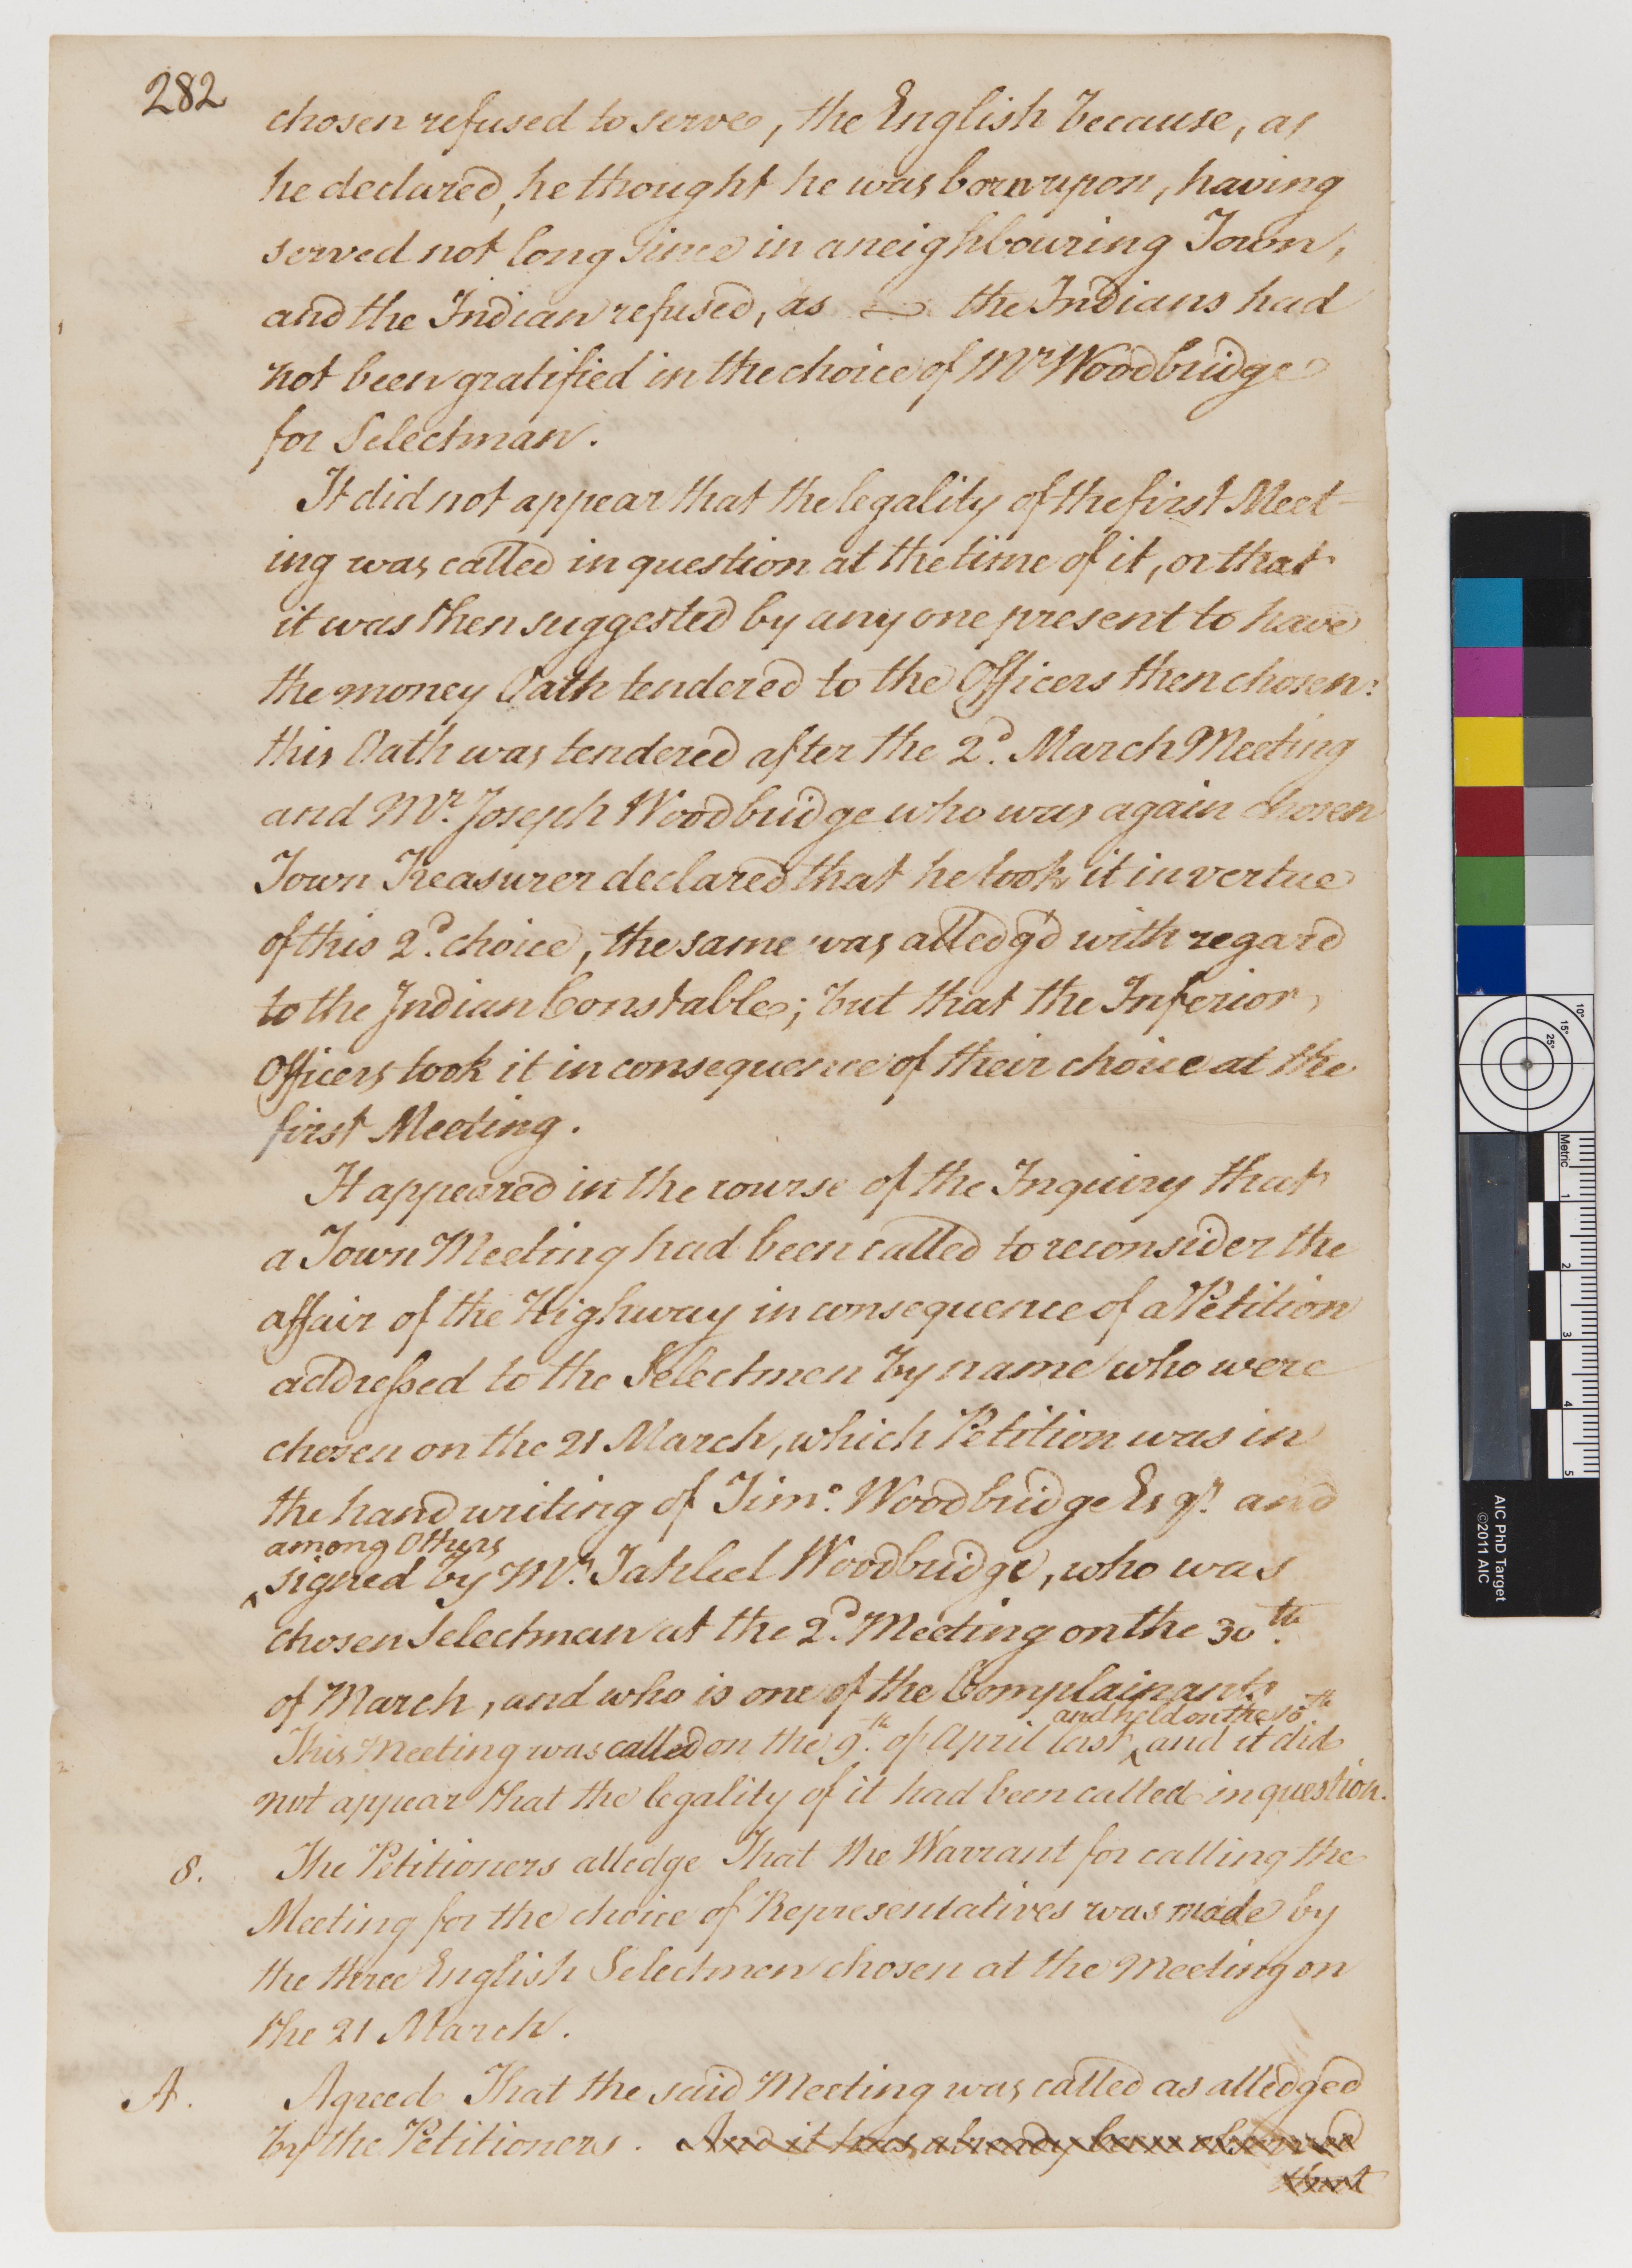 282
chosen refused to serve, the English because, as
he declared, he thought he was born upon, having
served not long since in a neighbouring Town,
and the Indian refused, as the Indians had
not been gratified in the choice of Mr Woodbridge
for Selectman.
It did not appear that the legality of the first Meet-
ing was called in question at the time of it, or that
it was then suggested by any one present to have
the money Oath tendered to the Officers then chosen:
this Oath was tendered after the 2d. March Meeting
and Mr. Joseph Woodbridge who was again chosen
Town Treasurer declared that he took it in vertue
of this 2d. choice, the same was alledg'd with regard
to the Indian Constable; but that the Inferior
Officers took it in consequence of their choice at the
first Meeting.
It appeared in the course of the Inquiry that
a Town Meeting had been called to reconsider the
affair of the Highway in consequence of a Petition
addressed to the Selectmen by name who were
chosen on the 21 March, which Petition was in
the hand writing of Timo. Woodbridge Esqr. and
among others
^signed by Mr. Jahleel Woodbridge, who was
chosen Selectman at the 2d. Meeting on the 30th.
of March, and who is one of the Complainants
and held on the 18th
This Meeting was called on the 9th. of April last,^ and it did
not appear that the legality of it had been called in question.
8. The Petitioners alledge That the Warrant for calling the
Meeting for the choice of Representatives was made by
the three English Selectmen chosen at the Meeting on
the 21 March.
A. Agreed That the said Meeting was called as alledged
by the Petitioners. And it has already been observed
that
AIC PhD Target
©2011 AIC
Metric
1
2
3
4
5
10°
15°
25°